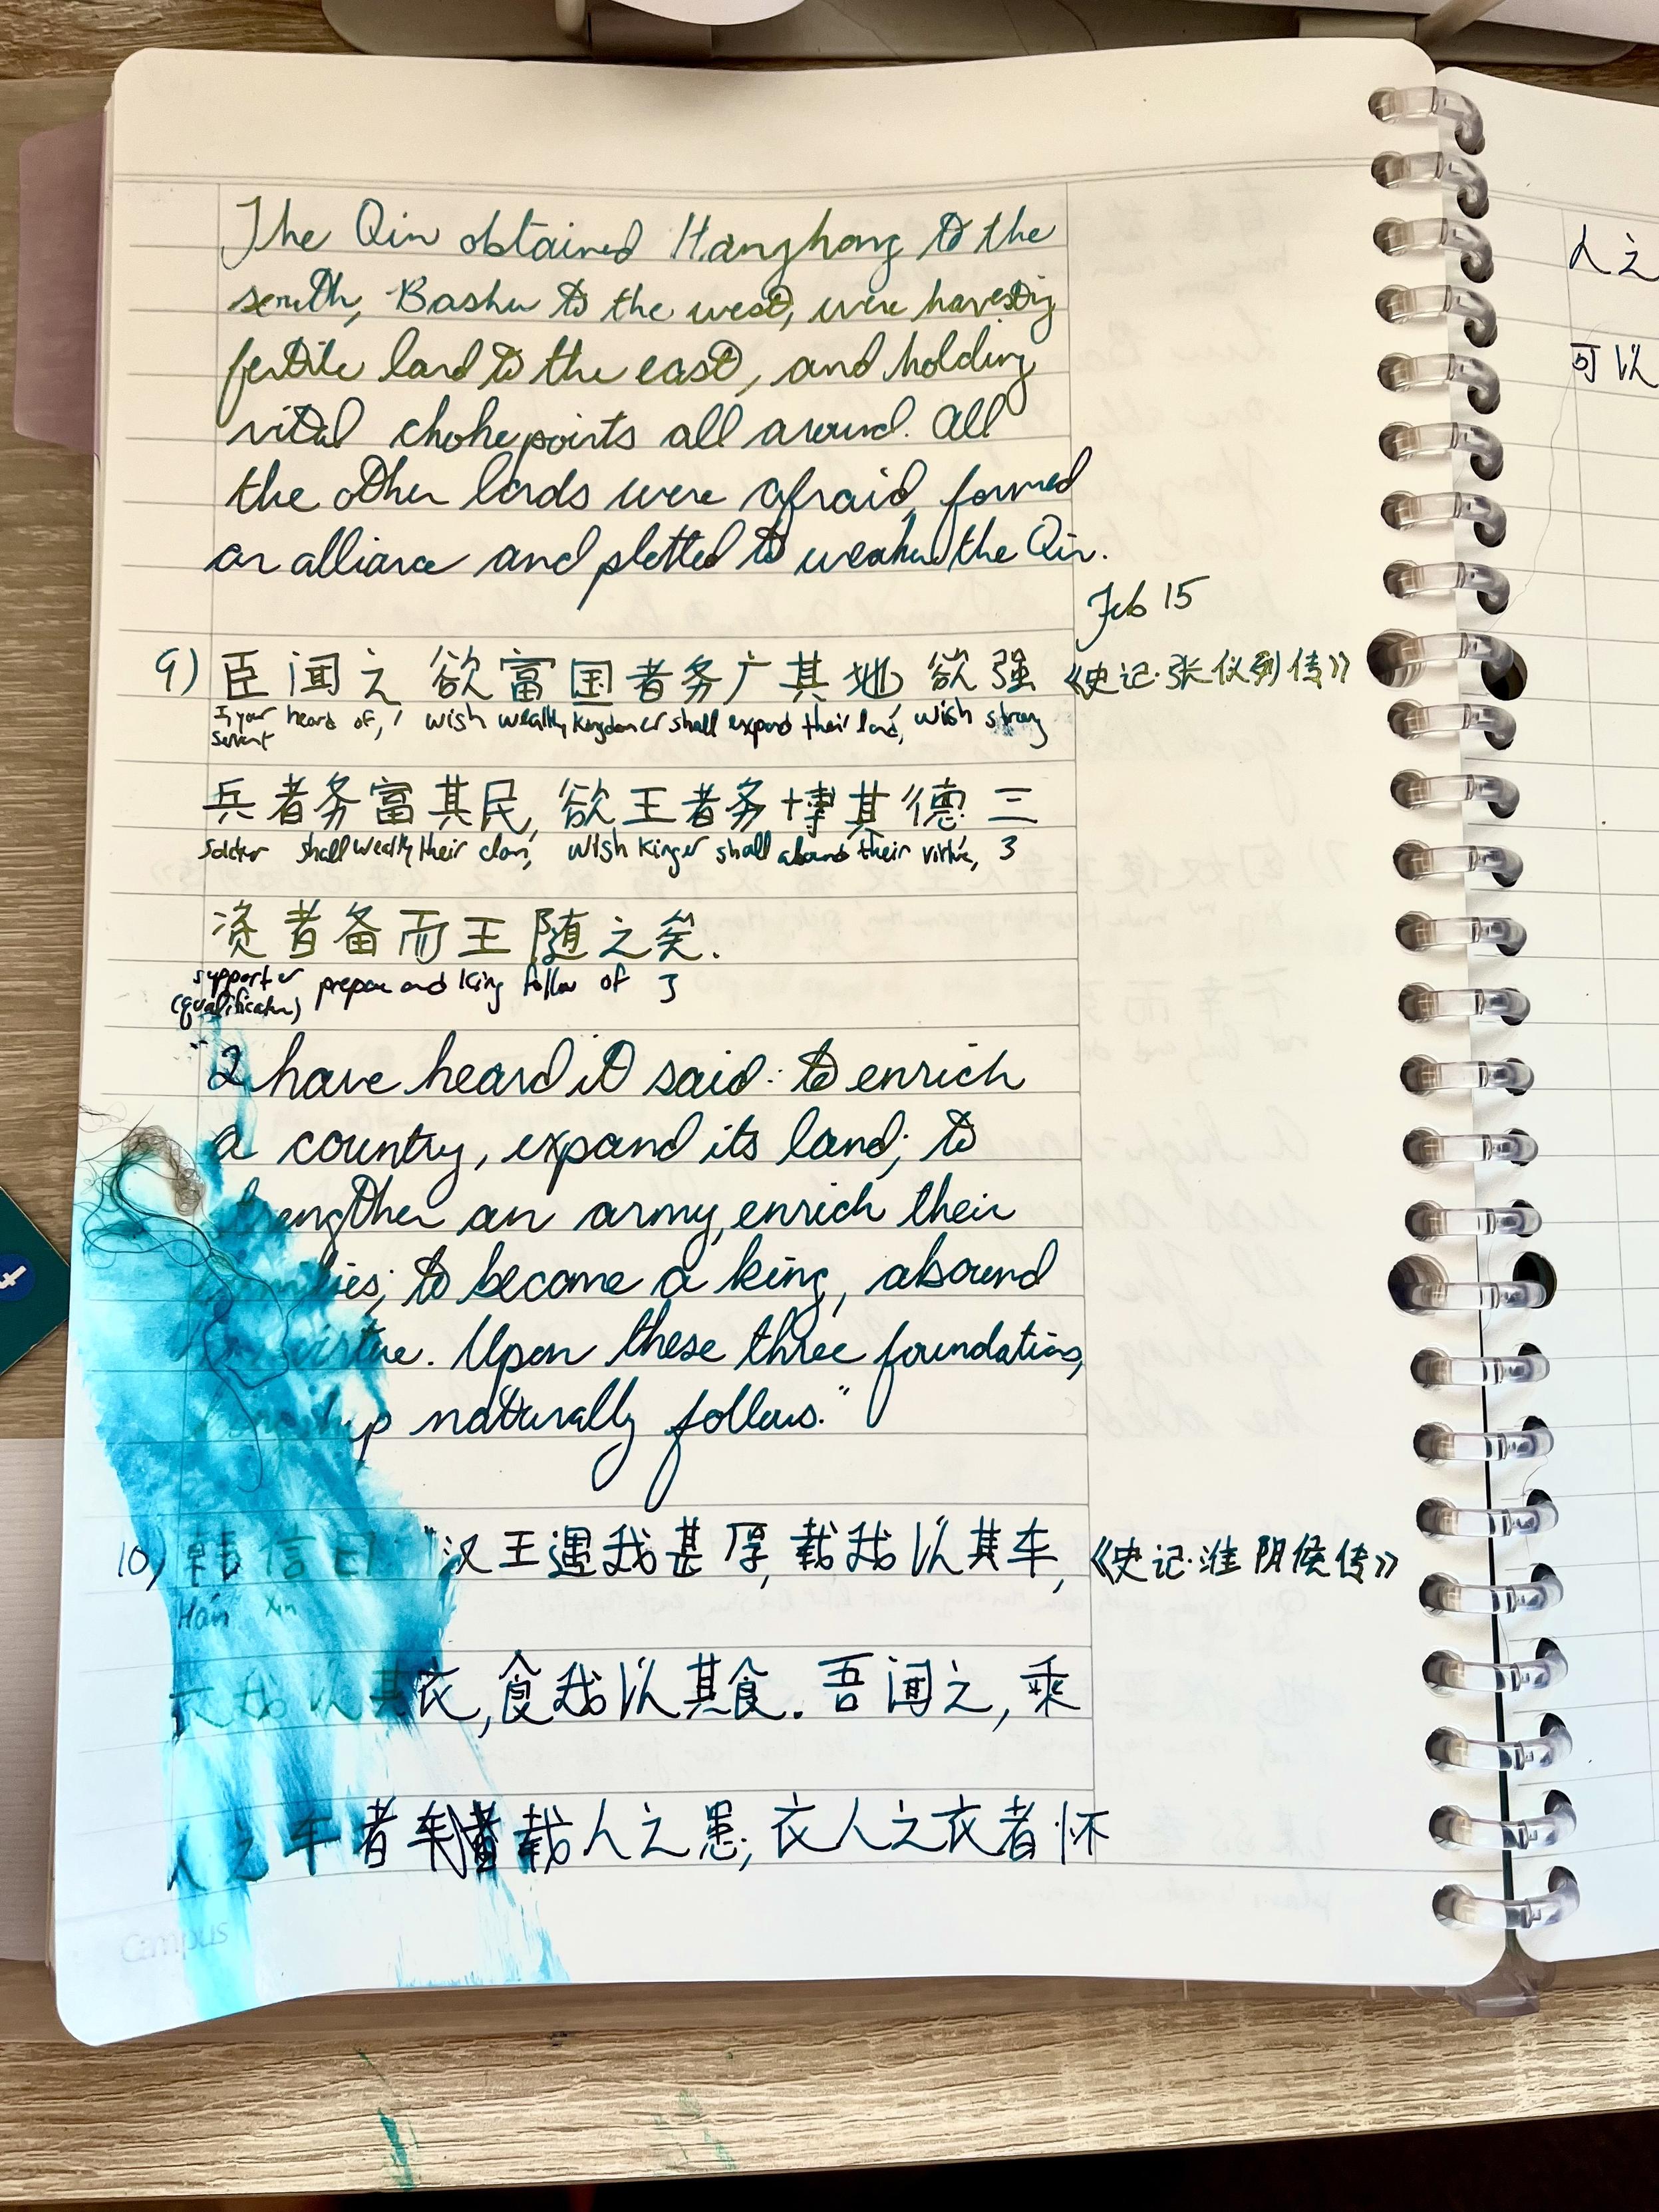 The Qin obtained Hanzhong to the
south, Bashu to the west, were harvesting
fertile land to the east, and holding
vital chokepoints all around. All
the other lords were afraid, formed
an alliance and plotted to weaken the Qin.
Feb 15
9) 臣闻之 欲富国者务广其地, 欲强 《史记·张仪列传》
I, your servant heard of, / wish wealthy kingdom er shall expand their land, wish strong
兵者务富其民, 欲王者务博其德 三
soldier shall wealthy their clan, wish king er shall abound their virtue, 3
资者备而王随之矣.
supporter (qualification) prepare and king follow of 了
"I have heard it said: to enrich
a country, expand its land; to
strengthen an army, enrich their
families; to become a king, abound
virtue. Upon these three foundations,
kingship naturally follows."
10) 韩信曰 "汉王遇我甚厚, 载我以其车, 《史记·淮阴侯传》
Hán Xin
衣我以其衣, 食我以其食. 吾闻之, 乘
人之车者载人之患; 衣人之衣者怀
Campus
人之
可以